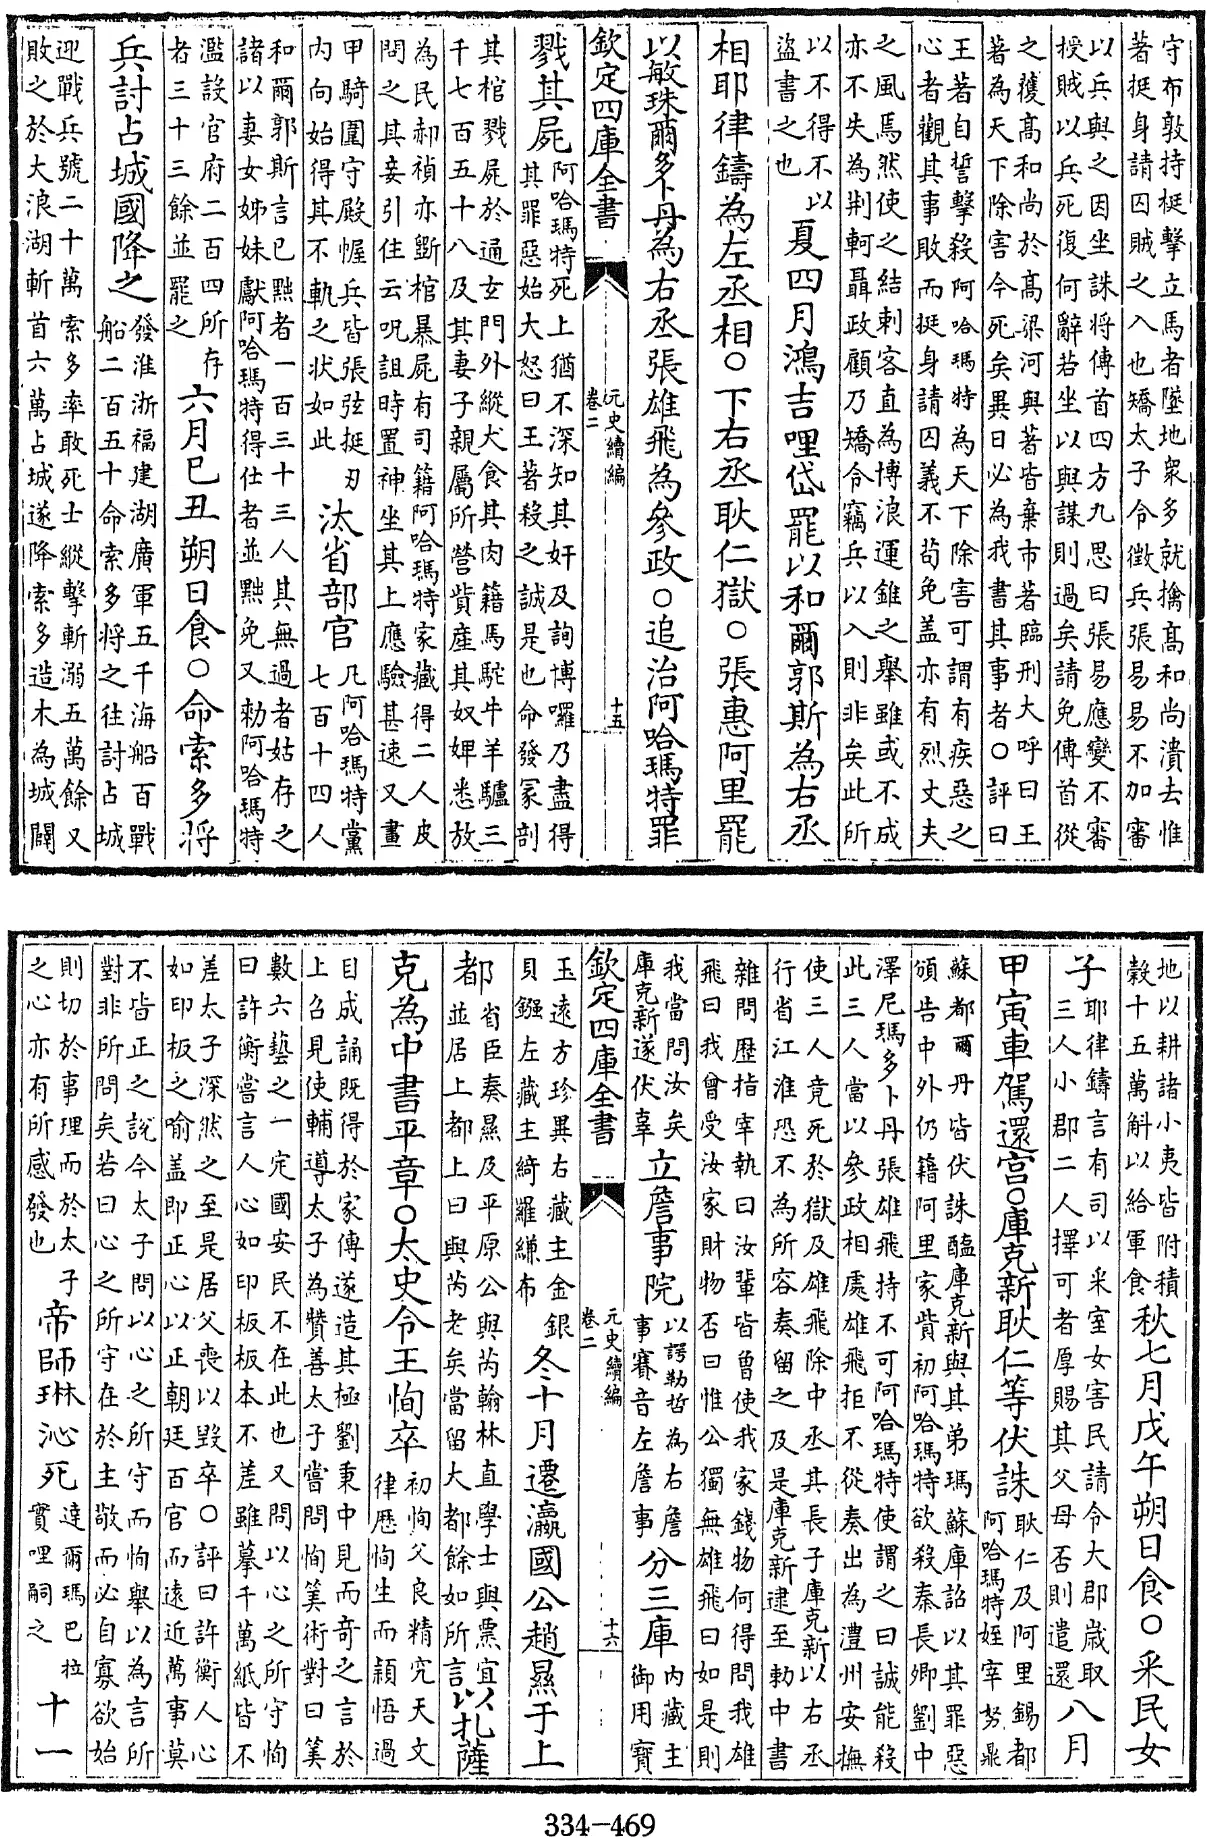 守布敦持梃擊立馬者墜地衆多就擒髙和尚潰去惟
著挺身請囚賊之入也矯太子令徵兵張易易不加審
以兵與之因坐誅將傳首四方九思曰張易應變不審
授賊以兵死復何辭若坐以與謀則過矣請免傳首從
之獲髙和尚於髙梁河與著皆棄市著臨刑大呼曰王
著為天下除害今死矣異日必為我書其事者○評曰
王著自誓擊殺阿哈瑪特為天下除害可謂有疾惡之
心者觀其事敗而挺身請囚義不苟免盖亦有烈丈夫
之風焉然使之結刺客直為博浪運錐之舉雖或不成
亦不失為荆軻聶政顧乃矯令竊兵以入則非矣此所
以不得不以
盜書之也
夏四月鴻吉哩岱罷以和爾郭斯為右丞
相耶律鑄為左丞相○下右丞耿仁獄○張惠阿里罷
以敏珠爾多卜丹為右丞張雄飛為參政○追治阿哈瑪特罪
欽定四庫全書
元史續編
卷二
十五
戮其屍
阿哈瑪特死上猶不深知其奸及詢博囉乃盡得
其罪惡始大怒曰王著殺之誠是也命發冢剖
其棺戮屍於通𤣥門外縱犬食其肉籍馬駝牛羊驢三
千七百五十八及其妻子親屬所營貲產其奴婢悉放
為民郝禎亦斵棺暴屍有司籍阿哈瑪特家藏得二人皮
問之其妾引住云呪詛時置神坐其上應驗甚速又畫
甲騎圍守殿幄兵皆張弦挺刃
内向始得其不軌之状如此
汰省部官
凡阿哈瑪特黨
七百十四人
和爾郭斯言已黜者一百三十三人其無過者姑存之
諸以妻女姊妹獻阿哈瑪特得仕者並黜免又勅阿哈瑪特
濫設官府二百四所存
者三十三餘並罷之
六月己丑朔日食○命索多將
兵討占城國降之
發淮浙福建湖廣軍五千海船百戰
船二百五十命索多將之往討占城
迎戰兵號二十萬索多率敢死士縱擊斬溺五萬餘又
敗之於大浪湖斬首六萬占城遂降索多造木為城闢
地以耕諸小夷皆附積
糓十五萬斛以給軍食
秋七月戊午朔日食○采民女
子
耶律鑄言有司以采室女害民請令大郡歳取
三人小郡二人擇可者厚賜其父母否則遣還
八月
甲寅車駕還宫○庫克新耿仁等伏誅
耿仁及阿里錫都
阿哈瑪特姪宰努鼎
蘇都爾丹皆伏誅醢庫克新與其弟瑪蘇庫詔以其罪惡
頒告中外仍籍阿里家貲初阿哈瑪特欲殺秦長卿劉中
澤尼瑪多卜丹張雄飛持不可阿哈瑪特使謂之曰誠能殺
此三人當以參政相處雄飛拒不從奏出為澧州安撫
使三人竟死於獄及雄飛除中丞其長子庫克新以右丞
行省江淮恐不為所容奏留之及是庫克新逮至勅中書
雜問歴指宰執曰汝輩皆曽使我家錢物何得問我雄
飛曰我曽受汝家財物否曰惟公獨無雄飛曰如是則
我當問汝矣
庫克新遂伏辜
立詹事院
以諤勒哲為右詹
事賽音左詹事
分三庫
内藏主
御用寳
欽定四庫全書
元史續編
卷二
十六
玉遠方珍異右藏主金銀
貝鏹左藏主綺羅縑布
冬十月遷瀛國公趙㬎于上
都
省臣奏㬎及平原公與芮翰林直學士與票宜
並居上都上曰與芮老矣當留大都餘如所言
以扎薩
克為中書平章○太史令王恂卒
初恂父良精究天文
律歴恂生而穎悟過
目成誦既得於家傳遂造其極劉秉中見而奇之言於
上召見使輔導太子為贊善太子嘗問恂筭術對曰筭
數六藝之一定國安民不在此也又問以心之所守恂
曰許衡嘗言人心如印板板本不差雖摹千萬紙皆不
差太子深然之至是居父喪以毁卒○評曰許衡人心
如印板之喻盖即正心以正朝廷百官而遠近萬事莫
不皆正之說今太子問以心之所守而恂舉以為言所
對非所問矣若曰心之所守在於主敬而必自寡欲始
則切於事理而於太子
之心亦有所感發也
帝師琳沁死
達爾瑪巴拉
實哩嗣之
十一
334-469